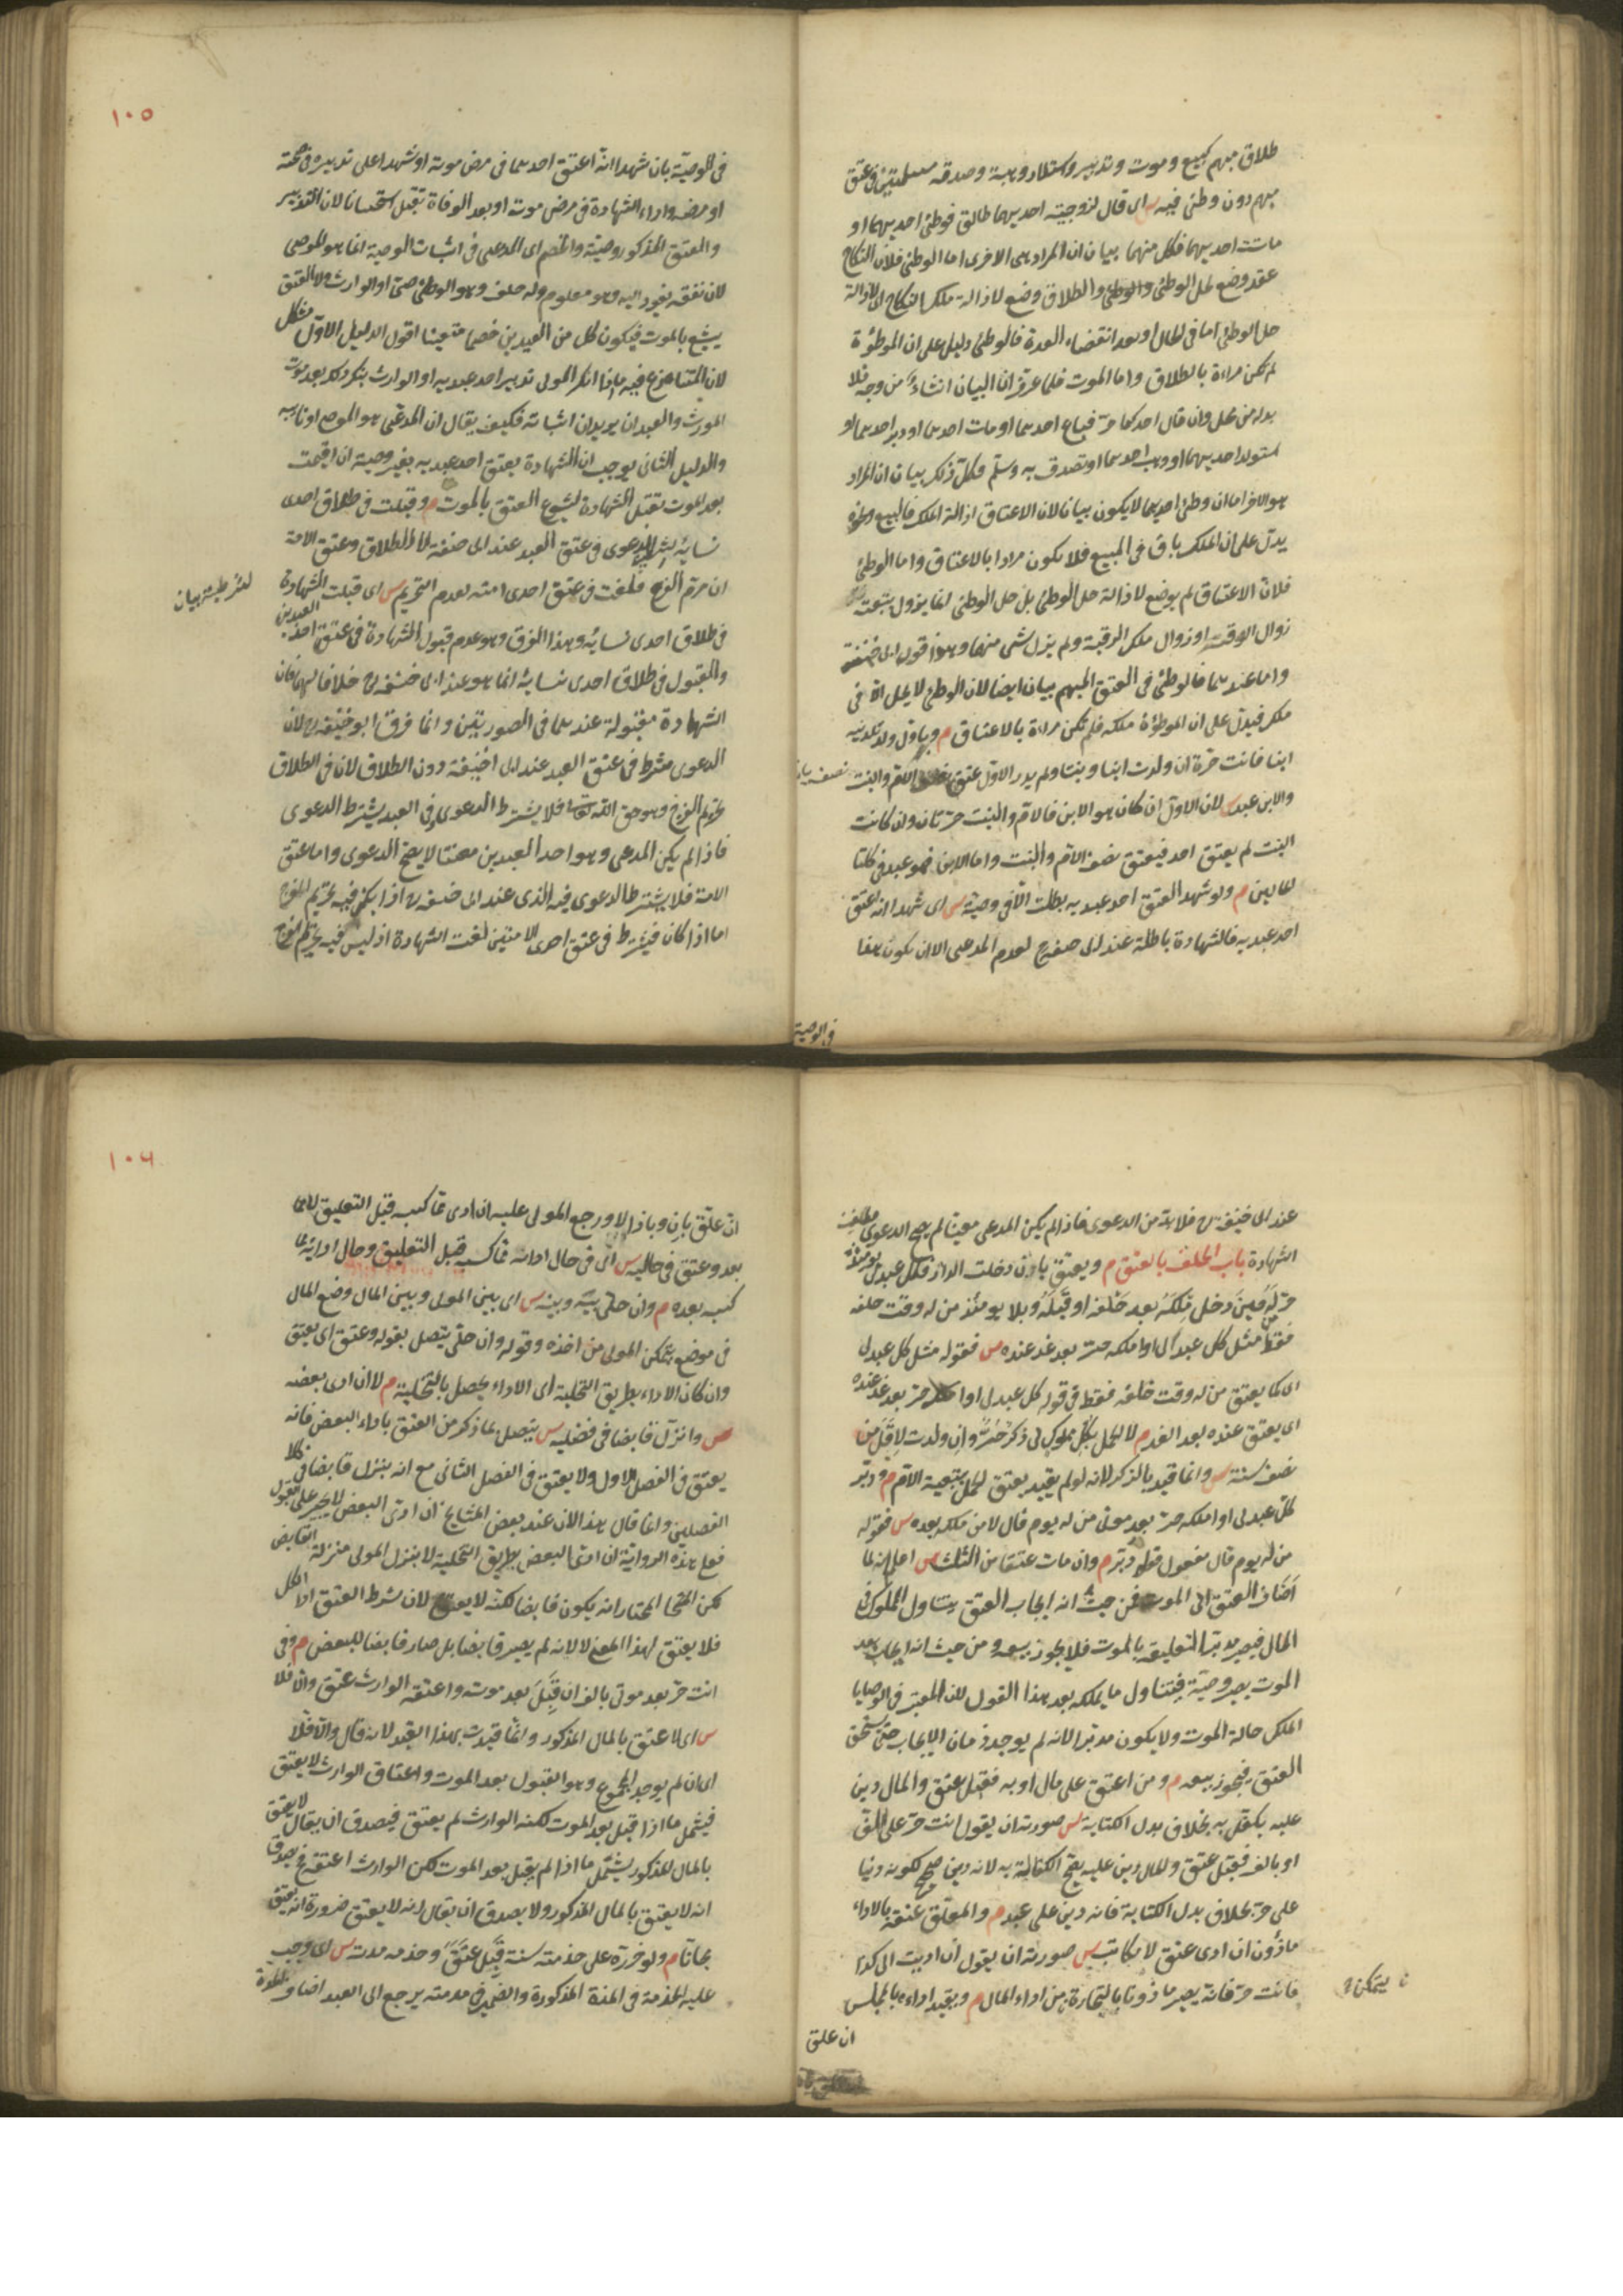 طلاق مبهم كبيع وموت وتدبير واستيلاد وهبة وصدقة مسلمتين في عتق
مبهم دون وطئ فيه س اى قال لزوجيته احديهما طالق فوطئ احديهما او
ماتت احديهما فكل منهما بيان ان المراد هى الاخرى اما الوطئ فلان النكاح
عقد وضع لحل الوطئ والطلاق وضع لازالة ملك النكاح اى لازالة
حل الوطئ اما فى الحال او بعد انقضاء العدة فالوطئ دليل على ان الموطؤة
لم تكن مرادة بالطلاق واما الموت فلما عرف ان البيان انشاء من وجه فلا
بد له من محل وان قال احدكما حرّ فباع احدهما او مات احدهما او دبر احدهما او
استولد احديهما او وهب احدهما او تصدق به وسلّم فكلّ ذلك بيان ان المراد
هو الاخر اما ان وطئ احديهما لا يكون بيانا لان الاعتاق ازالة الملك فالبيع ونحوه
يدلّ على ان الملك باق فى المبيع فلا يكون مرادا بالاعتاق واما الوطئ
فلانّ الاعتاق لم يوضع لازالة حل الوطئ بل حل الوطئ انما يزول بتبعية
زوال الرقبة او زوال ملك الرقبة ولم يزل شئ منهما وهذا قول ابى حنيفة
واما عندهما فالوطئ فى العتق المبهم بيان ايضا لان الوطئ لا يحل الا فى
ملك فيدلّ على ان الموطؤة ملكه فلم تكن مرادة بالاعتاق م وبأول ولد تلدينه
ابنا فانت حرة ان ولدت ابنا وبنتا ولم يدر الاول عتق نصف الام والبنت
والابن عبد س لان الاول ان كان هو الابن فالامّ والبنت حرّتان وان كانت
البنت لم يعتق احد فيعتق نصف الامّ والبنت واما الابن فهو عبد فى كلتا
الحالين م ولو شهد العتق احد عبديه بطلت الّا فى وصية س اى شهدا انه اعتق
احد عبديه فالشهادة باطلة عند ابى حنيفة رح لعدم المدعى الا ان يكون هذا
فى الوصية
١٠٥
فى الوصيّة بان شهدا انّه اعتق احدهما فى مرض موته او شهدا على تدبيره فى صحته
او مرضه واداء الشهادة فى مرض موته او بعد الوفاة تقبل استحسانا لان التدبير
والعتق المذكور وصيّة والخصم اى المدعى فى اثبات الوصية انما هو الموصى
لان نفعه يعود اليه وهو معلوم وله خلف وهو الوصىّ او الوارث ولان العتق
يشيع بالموت فيكون كل من العبدين خصما متعينا اقول الدليل الاوّل مشكل
لان المتنازع فيه ما اذا انكر المولى تدبير احد عبديه او الوارث ينكر ذلك بعد موت
المورث والعبدان يريدان اثباته فكيف يقال ان المدعى هو الموصى او نائبه
والدليل الثانى يوجب ان الشهادة بعتق احد عبديه بغير وصية ان اقيمت
بعد الموت تقبل الشهادة لشيوع العتق بالموت م وقبلت فى طلاق احدى
نسائه لشرط الدعوى فى عتق العبد عند ابى حنيفة لا الطلاق وعتق الامة
ان حرّم الفرج فلغت فى عتق احدى امتيه لعدم التحريم س اى قبلت الشهادة
فى طلاق احدى نسائه وهذا الفرق وهو عدم قبول الشهادة فى عتق احد العبدين
والقبول فى طلاق احدى نسائه انما هو عند ابى حنيفة رح خلافا لهما فان
الشهادة مقبولة عندهما فى الصورتين وانما فرق ابو حنيفة رح لان
الدعوى شرط فى عتق العبد عند ابى حنيفة دون الطلاق لان فى الطلاق
تحريم الفرج وهو حق الله تعالى فلا يشترط الدعوى وفى العبد يشترط الدعوى
فاذا لم يكن المدعى وهو احد العبدين معينا لا يصح الدعوى واما عتق
الامة فلا يشترط الدعوى فيه الذى عند ابى حنيفة رح اذا يكون فيه تحريم الفرج
اما اذا كان فيشترط فى عتق احدى الامتين لغت الشهادة اذ ليس فيه تحريم الفرج
عند ابى حنيفة رح فلا بد من الدعوى فاذا لم يكن المدعى معينا لم يصح الدعوى فلغت
الشهادة باب الحلف بالعتق م ويعتق بان دخلت الدار فكل عبد لى يومئذ
حرّ له حين دخل ملكه بعد حلفه او قبله وبلا يومئذ من له وقت حلفه
فقط مثل كل عبد لى او املكه حرّ بعد غد عنده س فقوله مثل كل عبد لى
اى كما يعتق من له وقت حلفه فقط فى قوله كل عبد لى او املكه حرّ بعد غد عنده
اى يعتق عنده بعد الغد م لا الحمل بكل مملوك لى ذكر حرّ وان ولدت لاقل من
نصف سنة س وانما قيد بالذكر لانه لو لم يقيد يعتق الحمل بتبعية الامّ م ودبّر
بكل عبد لى او املكه حرّ بعد موتى من له يوم قال لا من ملكه بعده س فقوله
من له يوم قال مفعول قوله دبّر م وان مات عتقا من الثلث س اعلم انه لما
اضاف العتق الى الموت فمن حيث انه ايجاب العتق يتناول المملوك فى
الحال فيصير مدبّرا لتعليقه بالموت فلا يجوز بيعه ومن حيث انه ايجاب بعد
الموت يصير وصيّة فيتناول ما يملكه بعد هذا القول لان المعتبر فى الوصايا
الملك حالة الموت ولا يكون مدبّرا لانه لم يوجد زمان الايجاب حتى يستحق
العتق فيجوز بيعه م ومن اعتق على مال او به فقبل عتق والمال دين
عليه يكفل به بخلاف بدل الكتابة س صورته ان يقول انت حرّ على الف
او بالف فقبل عتق والمال دين عليه يصح الكفالة به لانه دين صحيح لكونه دينا
على حرّ بخلاف بدل الكتابة فانه دين على عبد م والمعلّق عتقه بالاداء
مأذون ان ادى عتق لا مكاتب س صورته ان يقول ان اديت الى كذا
فانت حرّ فانه يصير مأذونا بالتجارة من اداء المال م ويقيد اداءه بالمجلس
ليتمكن
ان علق
١٠٦
ان علّق بان وباذا لا ورجع المولى عليه ان ادى مما كسبه قبل التعليق لا بما
بعده وعتق فى حاليه س اى فى حال ادائه مما كسبه قبل التعليق وحال ادائه مما
كسبه بعده م وان خلى بينه وبينه س اى بين المولى وبين المال وضع المال
فى موضع يتمكن المولى من اخذه وقوله وان خلّى يتصل بقوله وعتق اى يعتق
وان كان الاداء بطريق التخلية اى الاداء يحصل بالتخلية م لا ان ادى بعضه
وانزل قابضا فى فصليه س يتصل بما ذكر من العتق باداء البعض فانه
يعتق فى الفصل الاول ولا يعتق فى الفصل الثانى مع انه ينزل قابضا فى كلا
الفصلين وانما قال هذا لان عند بعض المشايخ ان ادى البعض لا يجبر على القبول
فعلى هذه الرواية ان ادى البعض بطريق التخلية لا ينزل المولى منزلة القابض
لكن المختار انه يكون قابضا لكنه لا يعتق لان شرط العتق اداء الكل
فلا يعتق لهذا المعنى لا لانه لم يصر قابضا بل صار قابضا للبعض م وفى
انت حرّ بعد موتى بالف ان قبل بعد موته واعتقه الوارث عتق والّا فلا
س اى لا عتق بالمال المذكور وانّما قيدت بهذا القيد لانه قال والّا فلا
اى ان لم يوجد المجموع وهو القبول بعد الموت واعتاق الوارث لا يعتق
فيشمل ما اذا قبل بعد الموت لكنه الوارث لم يعتق فيصدق ان يقال لا يعتق
بالمال المذكور يشمل ما اذا لم يقبل بعد الموت لكن الوارث اعتقه فيصدق
انه لا يعتق بالمال المذكور ولا يصدق ان يقال انه لا يعتق ضرورة انه يعتق
مجانا م ولو حرّره على خدمته سنة فقبل عتق وخدمه مدته س اى وجب
عليه الخدمة فى المدة المذكورة والضمير فى مدمته يرجع الى العبد اضاف